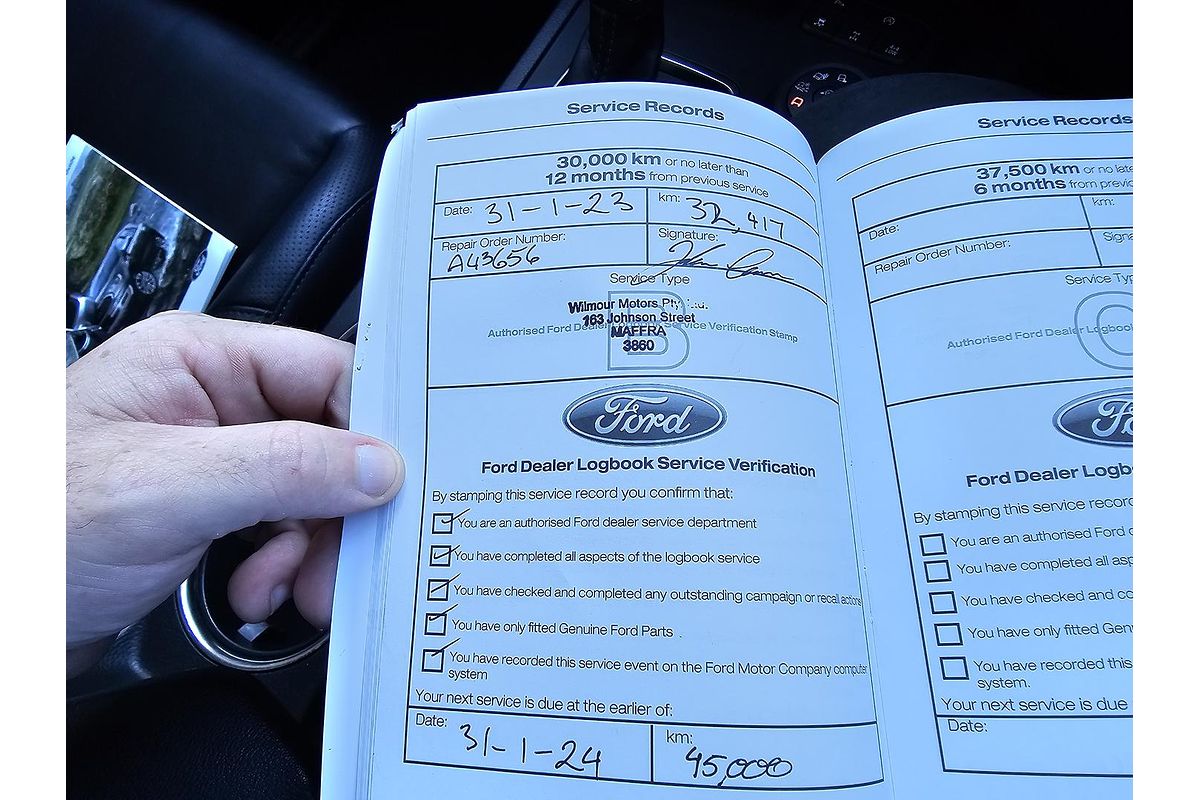 Service Records
30,000 km or no later than
12 months from previous service
Date: 31-1-23 km: 32,417
Repair Order Number: Signature:
A43656
Service Type
B
Wilmour Motors Pty Ltd.
163 Johnson Street
Authorised Ford Dealer Logbook Service Verification Stamp
MAFFRA
3860
Ford
Ford Dealer Logbook Service Verification
By stamping this service record you confirm that:
You are an authorised Ford dealer service department
You have completed all aspects of the logbook service
You have checked and completed any outstanding campaign or recall actions
You have only fitted Genuine Ford Parts .
You have recorded this service event on the Ford Motor Company computer
system
Your next service is due at the earlier of:
Date: 31-1-24 km: 45,000
Service Records
37,500 km or no late
6 months from previo
Date: km:
Repair Order Number: Signa
Service Typ
C
Authorised Ford Dealer Logbook
Fo
Ford Dealer Logb
By stamping this service record
You are an authorised Ford d
You have completed all asp
You have checked and co
You have only fitted Gen
You have recorded this
system.
Your next service is due
Date: